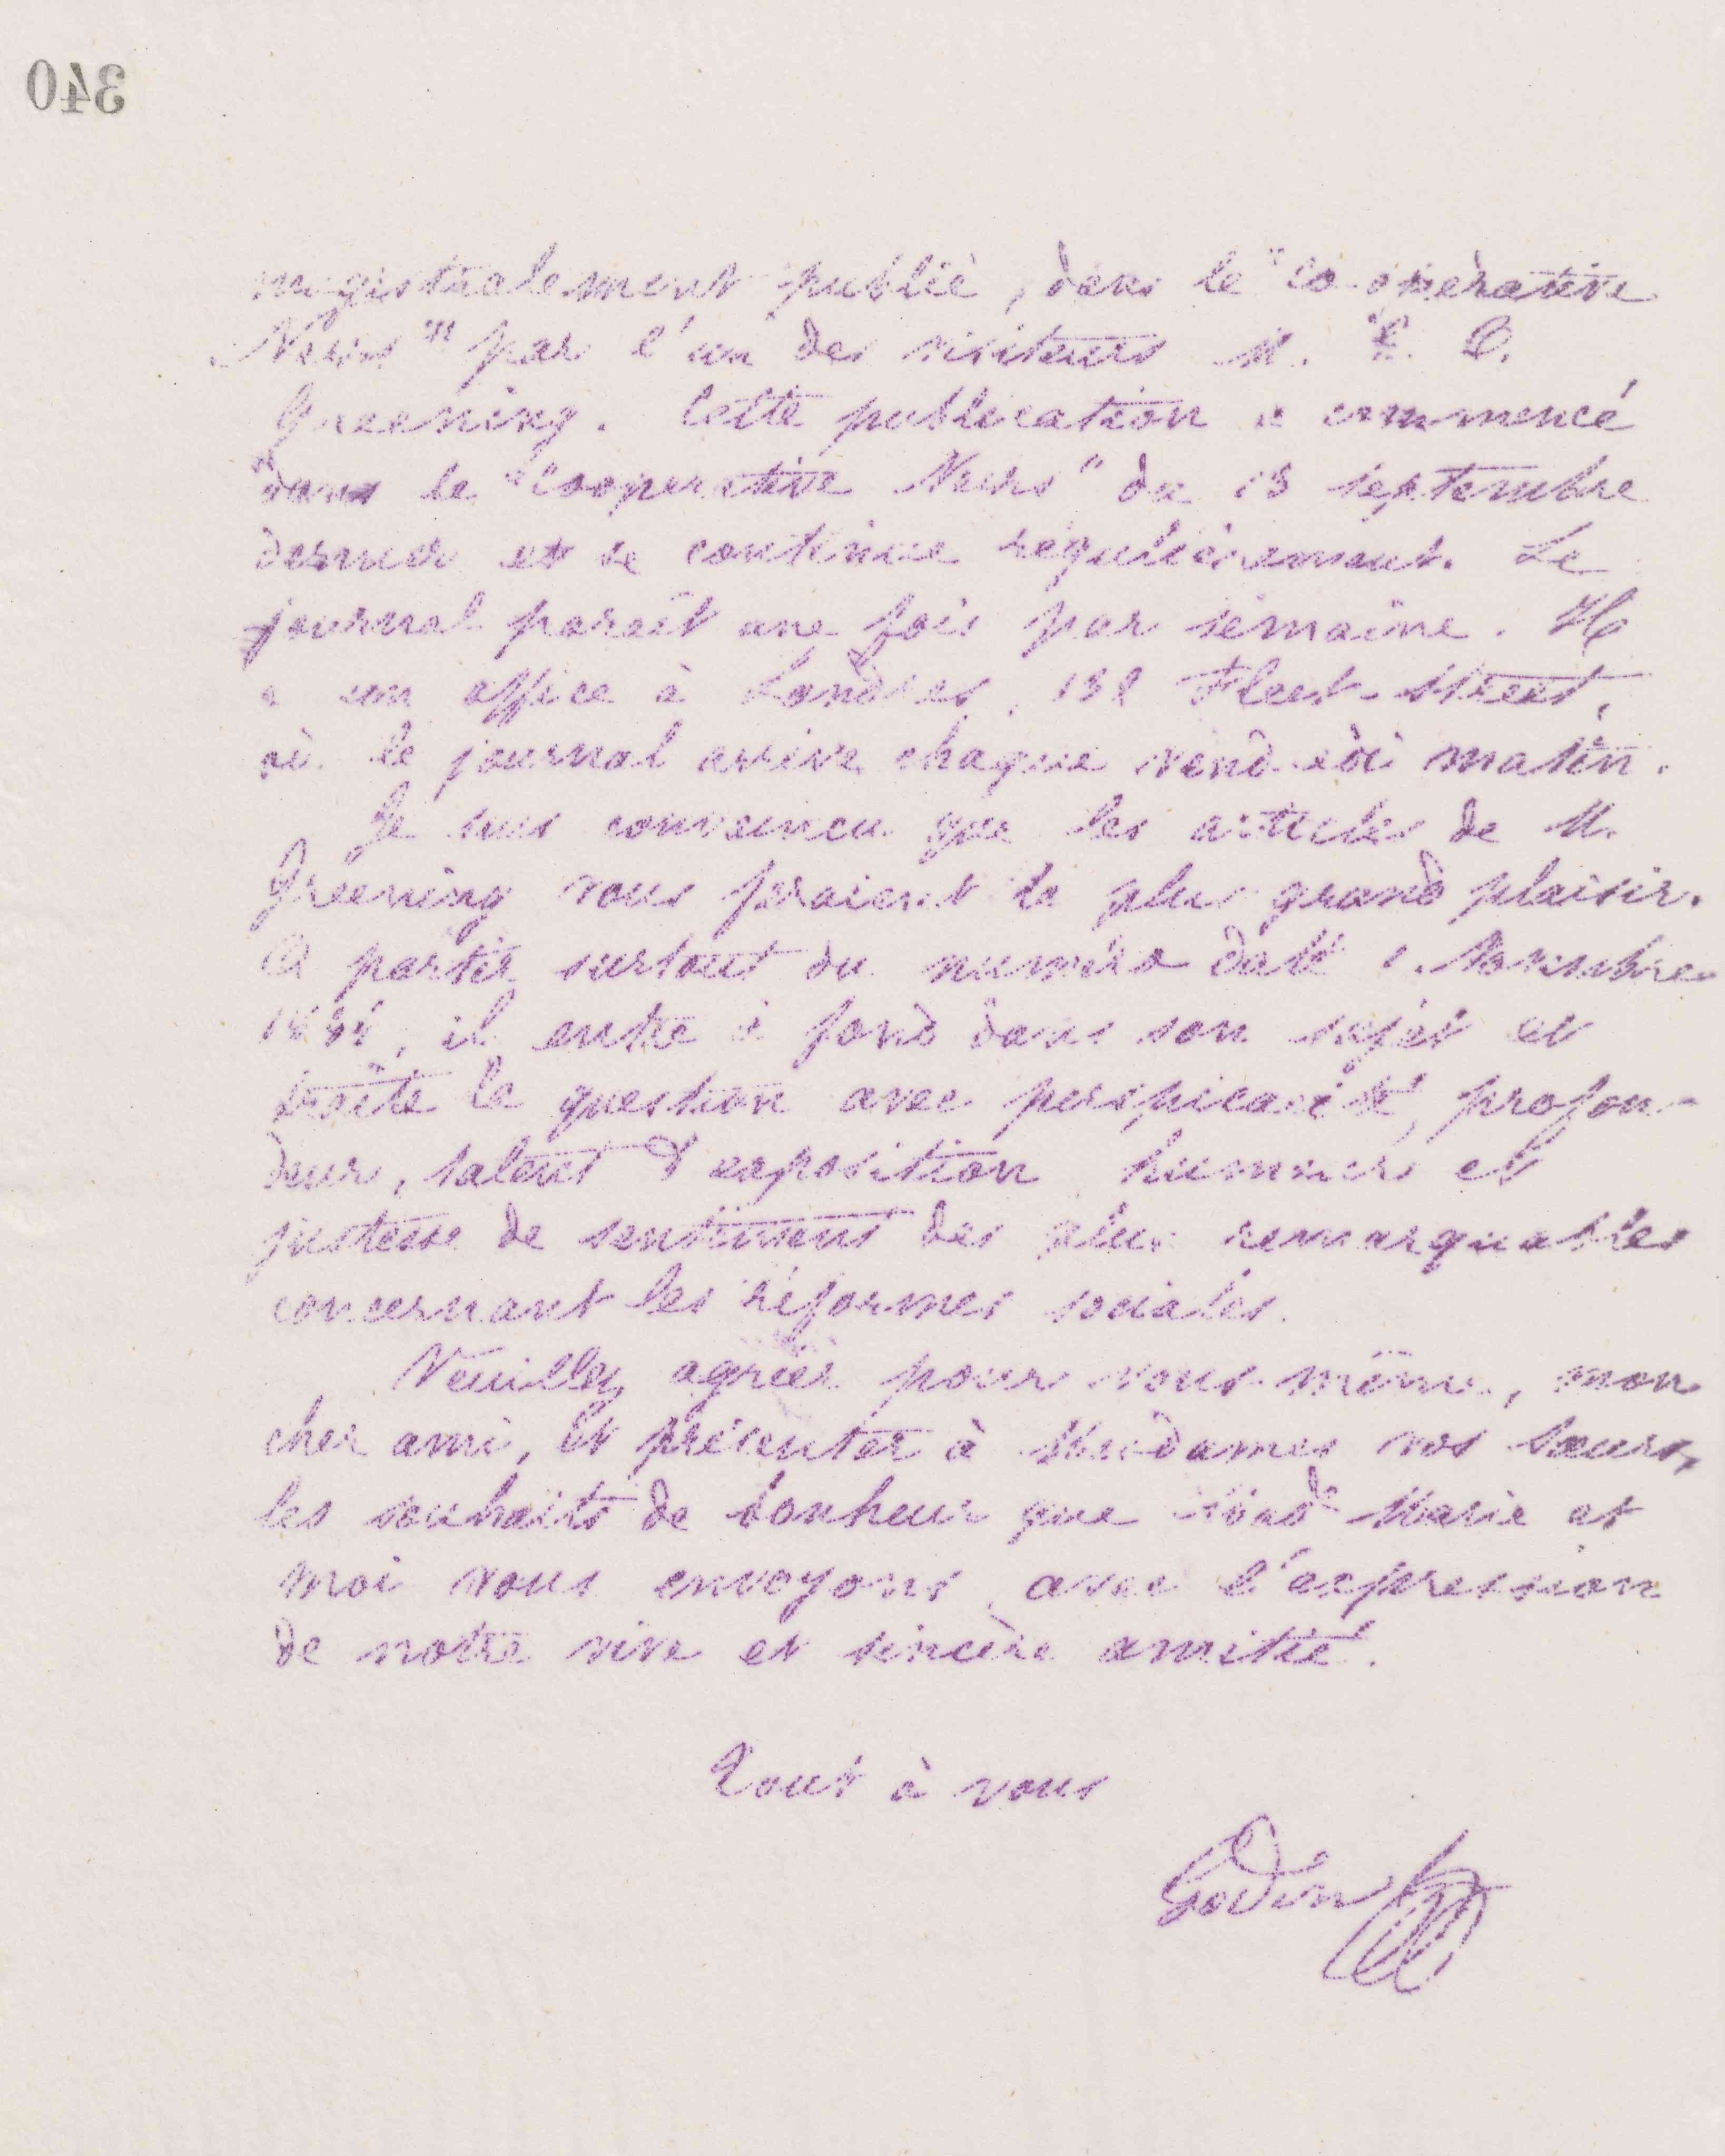 340
magistralement publié, dans le "Co-opérative
News" par l'un des visiteurs M. E. O.
Greening. Cette publication a commencé
dans le "Cooperative News" du 13 septembre
dernier et se continue régulièrement. Le
journal paraît une fois par semaine. Il
a un office à Londres, 138 Fleet-Street,
où le journal arrive chaque vendredi matin.
Je suis convaincu que les articles de M.
Greening vous feraient le plus grand plaisir.
A partir surtout du numéro daté 1. Novembre
1884, il entre à fond dans son sujet et
traite la question avec perspicacité, profon-
deur, talent d'exposition, humour et
justesse de sentiment des plus remarquables
concernant les réformes sociales.
Veuillez agréer pour vous-même, mon
cher ami, et présenter à Mesdames vos sœurs,
les souhaits de bonheur que Mad.e Marie et
moi vous envoyons avec l'expression
de notre vive et sincère amitié.
Tout à vous
Godin